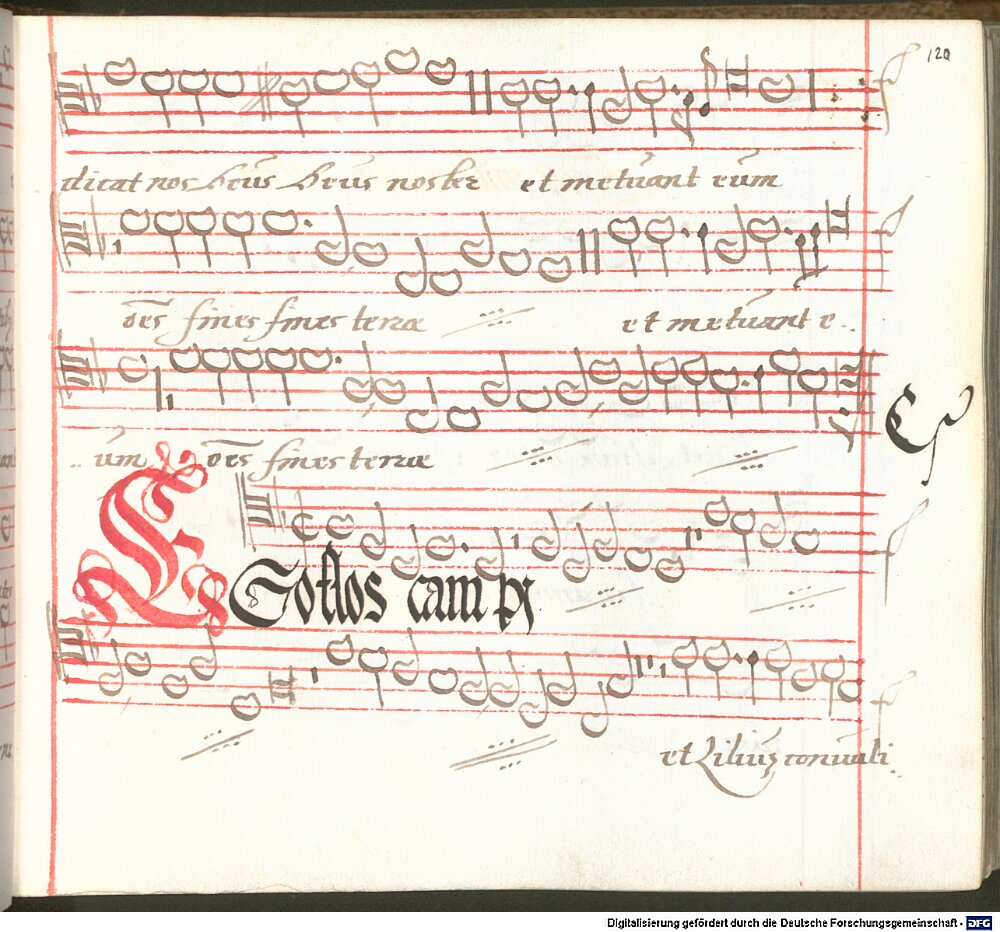 120
dicat nos deus deus noster et metuant eum
oēs fines fines terræ et metuant e..
..um oēs fines terræ
EGo flos campi
et Lilium conualli..
Digitalisierung gefördert durch die Deutsche Forschungsgemeinschaft - DFG